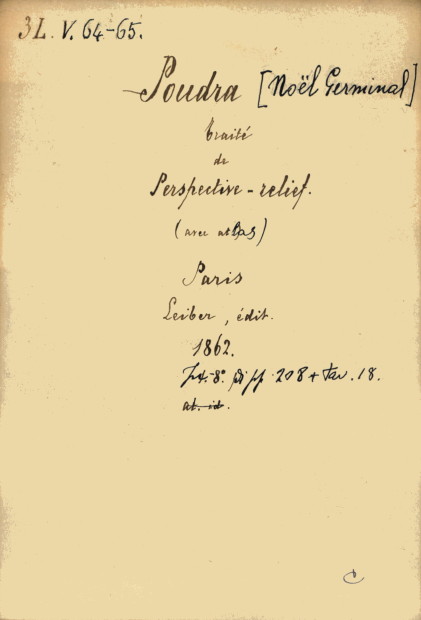 3L. V. 64-65.
Poudra [Noël Germinal]
Traité
de
Perspective-relief.
(avec atlas)
Paris
Leiber, édit.
1862.
8º. di pp. 208 + tav. 18.
at. id.